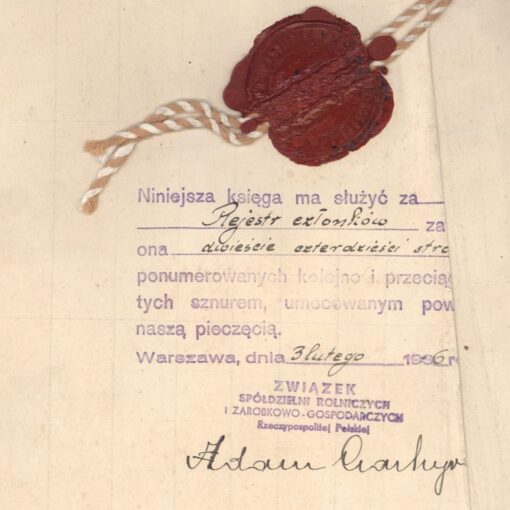 Niniejsza księga ma służyć za
Rejestr członków za
ona dwieście czterdzieści stro
ponumerowanych kolejno i przecią
tych sznurem, umocowanym pow
naszą pieczęcią.
Warszawa, dnia 3 lutego 1936 r
ZWIĄZEK
SPÓŁDZIELNI ROLNICZYCH
I ZAROBKOWO-GOSPODARCZYCH
Rzeczypospolitej Polskiej
Adam